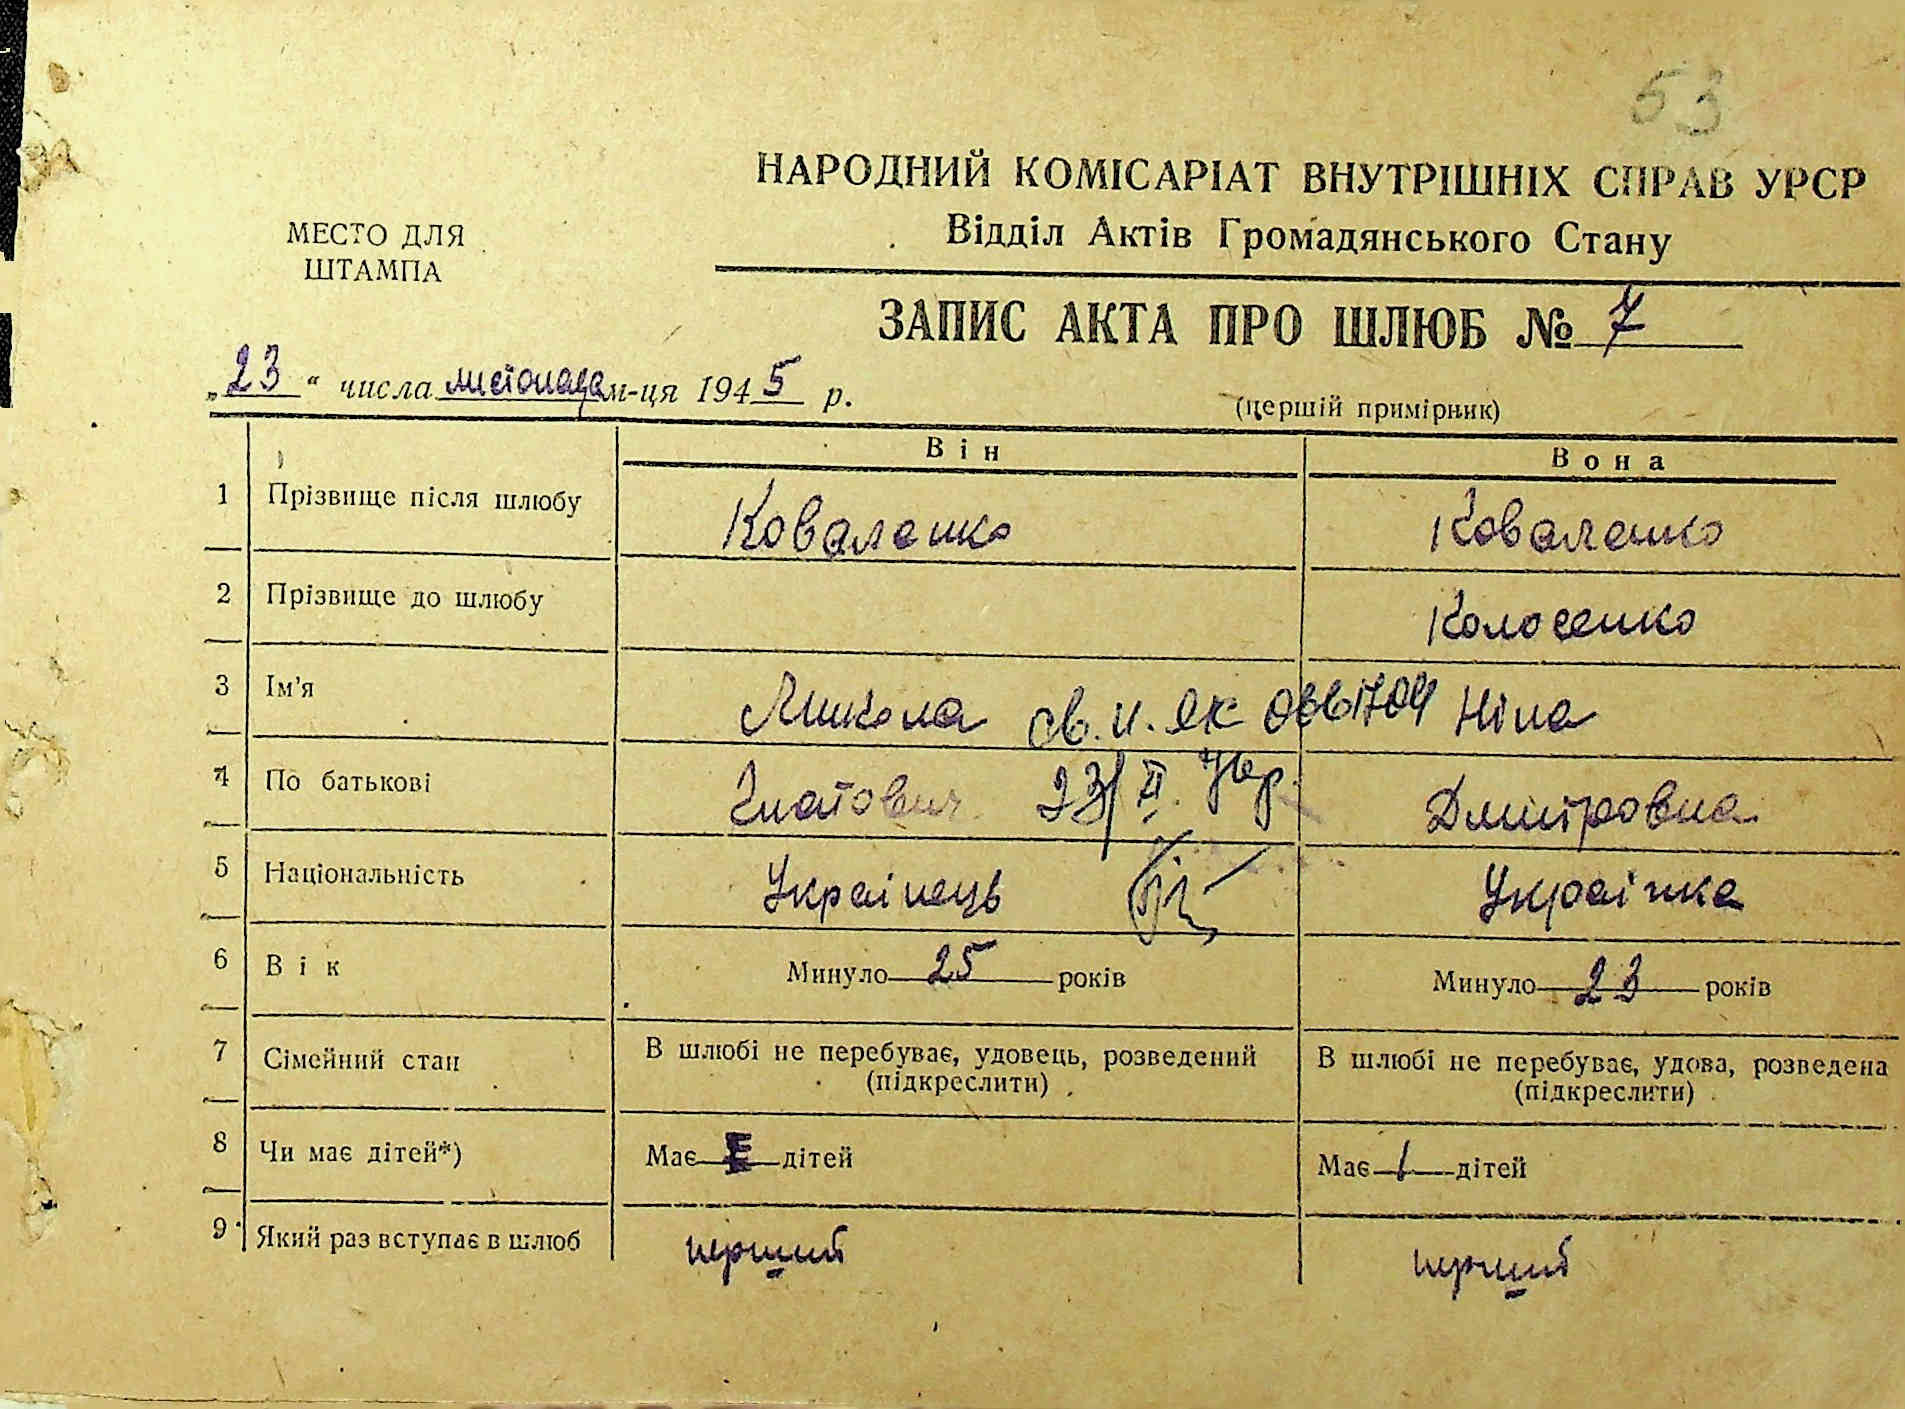 53
НАРОДНИЙ КОМІСАРІАТ ВНУТРІШНІХ СПРАВ УРСР
Відділ Актів Громадянського Стану
МЕСТО ДЛЯ
ШТАМПА
ЗАПИС АКТА ПРО ШЛЮБ № 7
„23“ числа листопада м-ця 1945 р.
(перший примірник)
Він Вона
1 Прізвище після шлюбу Коваленко Коваленко
2 Прізвище до шлюбу Колосенко
3 Ім'я Микола св. и. як Ніна
4 По батькові Гнатович 23/II Дмитровна
5 Національність Українець Українка
6 Вік Минуло 25 років Минуло 23 років
7 Сімейний стан В шлюбі не перебуває, удовець, розведений В шлюбі не перебуває, удова, розведена
(підкреслити) (підкреслити)
8 Чи має дітей*) Має дітей Має 1 дітей
9 Який раз вступає в шлюб перший перший